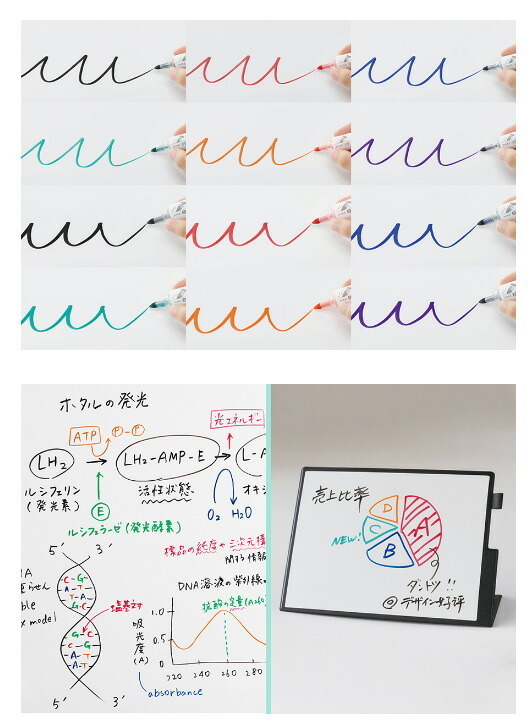 ホタルの発光
ATP
P-P
光エネルギー
LH₂
LH₂-AMP-E
L-A
ルシフェリン
(発光素)
活性状態
O₂ H₂O
オキシ
E
ルシフェラーゼ(発光酵素)
標品の純度や三次元構
関する情報
5' 3'
model
塩基対
C-G
A-T
T-A
G-C
G-C
C-G
A-T
A-T
5' 3'
DNA溶液の紫外線の
核酸の定量(A260)
吸光度(A)
1.0
0.5
0
220 240 260 280
absorbance
売上比率
NEW!
A
B
C
D
ダントツ!!
◎デザイン好評